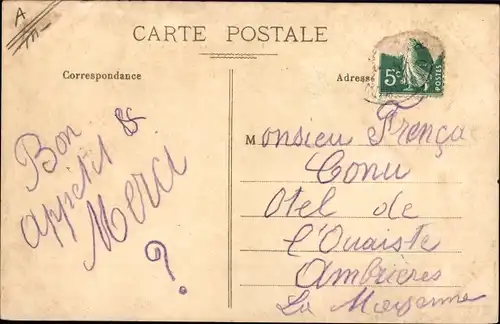 A
CARTE POSTALE
Correspondance
Adresse
5c
POSTES
Bon
appétit &
Merci
?
Monsieu Frença
Conu
Otel de
l'Ouaiste
Ambrieres
La Mayenne